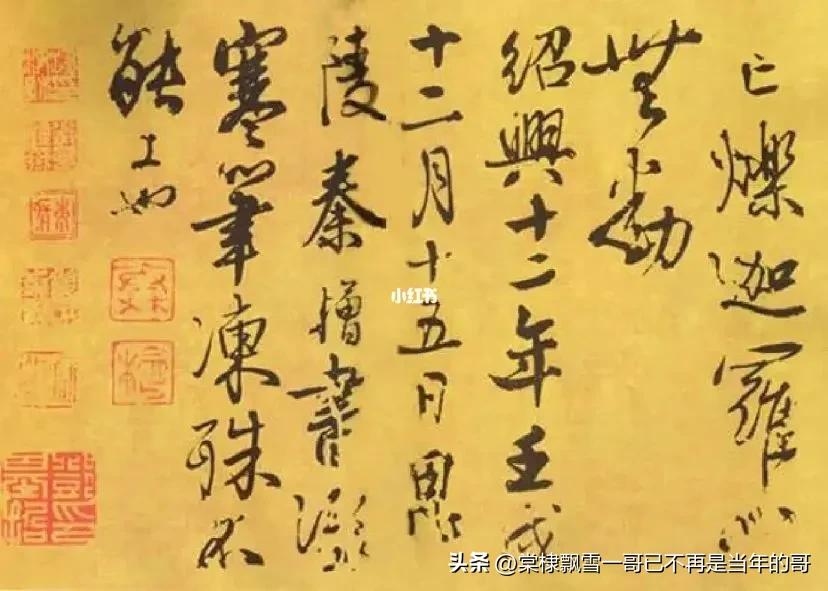 亡爍迦羅心
無動
紹興十二年壬戌
十二月十五日恩
陵秦檜書
寒筆凍殊不
能工也
小红书
头条 @棠棣飘雪一哥已不再是当年的哥